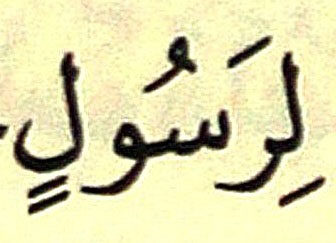 لِرَسُولٍ